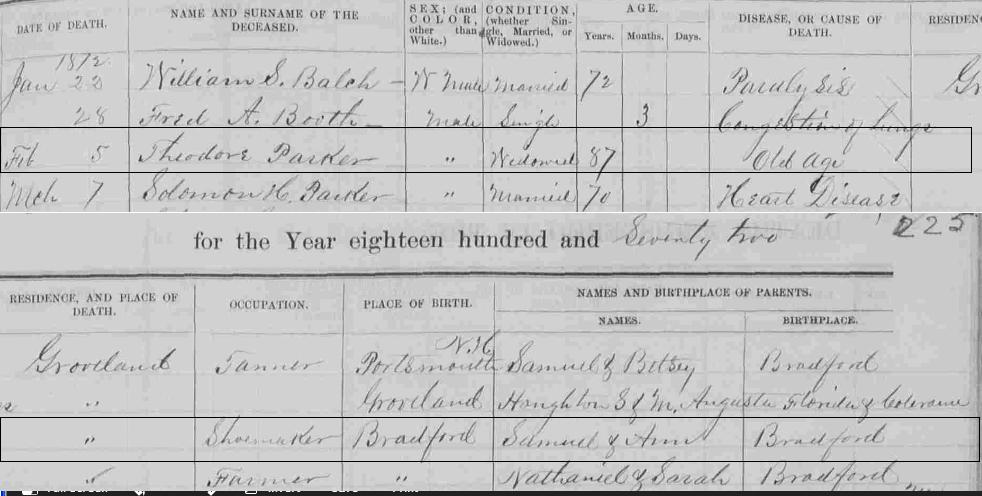 DATE OF DEATH. NAME AND SURNAME OF THE DECEASED. SEX; (and COLOR, other than White.) CONDITION, (whether Single, Married, or Widowed.) AGE. Years. Months. Days. DISEASE, OR CAUSE OF DEATH. RESIDENC
1872
Jan 22 William S. Balch W Male Married 72 Paralysis Gr
28 Fred A. Booth Male Single 3 Congestion of Lungs
Feb 5 Theodore Parker " Widowed 87 Old Age
Mch 7 Solomon H. Parker " Married 70 Heart Disease
for the Year eighteen hundred and Seventy two 225
RESIDENCE, AND PLACE OF DEATH. OCCUPATION. PLACE OF BIRTH. NAMES AND BIRTHPLACE OF PARENTS. NAMES. BIRTHPLACE.
N.H.
Groveland Tanner Portsmouth Samuel & Betsey Bradford
" Groveland Houghton S & M. Augusta Florida &
" Shoemaker Bradford Samuel & Ann Bradford
" Farmer " Nathaniel & Sarah Bradford